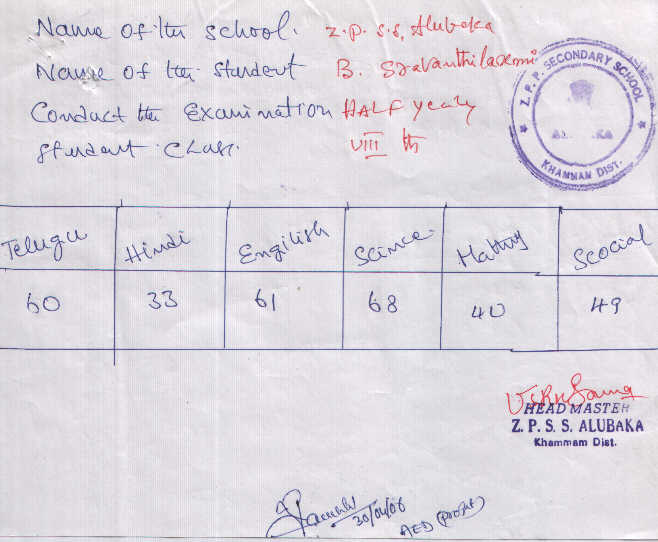 Name of the school. Z.P. S.S, Alubaka
Name of the student B. Sravanthilaxmi
Conduct the Examination HALF yearly
student class. VIII th
Z. P. P. SECONDARY SCHOOL
ALUBAKA
KHAMMAM DIST.
Telugu Hindi Engilish Scince Maths Scocial
60 33 61 68 40 49
HEAD MASTER
Z. P. S. S. ALUBAKA
Khammam Dist.
30/04/06
AED (Project)